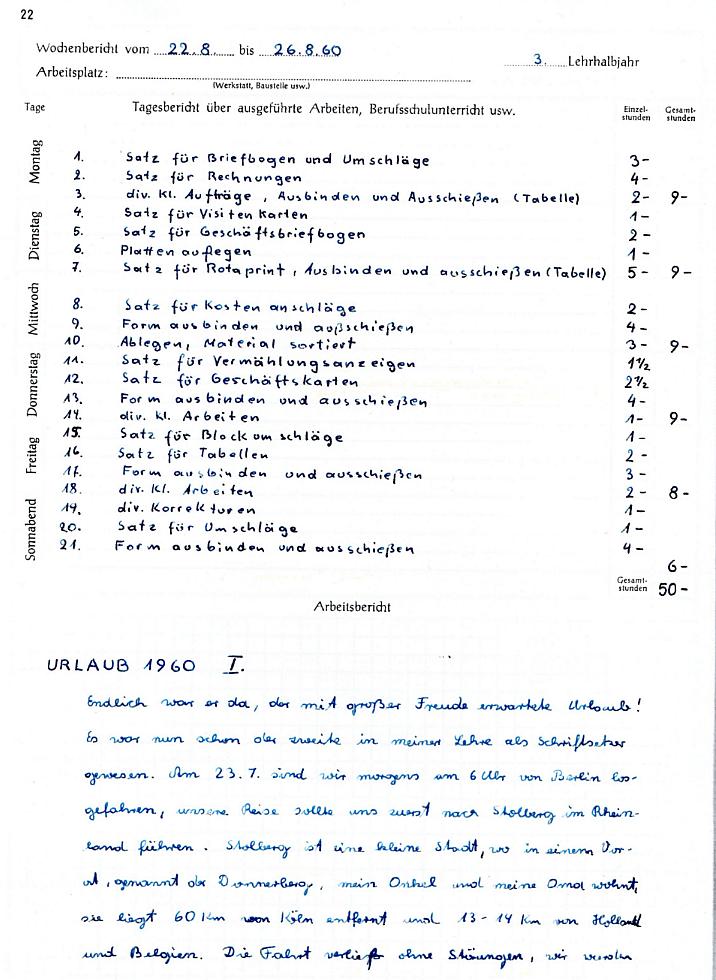 22
Wochenbericht vom 22.8. bis 26.8.60
3. Lehrhalbjahr
Arbeitsplatz:
(Werkstatt, Baustelle usw.)
Tage Tagesbericht über ausgeführte Arbeiten, Berufsschulunterricht usw. Einzel-stunden Gesamt-stunden
Montag
1. Satz für Briefbogen und Umschläge 3-
2. Satz für Rechnungen 4-
3. div. kl. Aufträge, Ausbinden und Ausschießen (Tabelle) 2- 9-
Dienstag
4. Satz für Visitenkarten 1-
5. Satz für Geschäftsbriefbogen 2-
6. Platten auflegen 1-
7. Satz für Rotaprint, Ausbinden und ausschießen (Tabelle) 5- 9-
Mittwoch
8. Satz für Kostenanschläge 2-
9. Form ausbinden und außschießen 4-
10. Ablegen, Material sortiert 3- 9-
Donnerstag
11. Satz für Vermählungsanzeigen 1½
12. Satz für Geschäftskarten 2½
13. Form ausbinden und ausschießen 4-
14. div. kl. Arbeiten 1- 9-
Freitag
15. Satz für Blockumschläge 1-
16. Satz für Tabellen 2-
17. Form ausbinden und ausschießen 3-
18. div. kl. Arbeiten 2- 8-
Sonnabend
19. div. Korrekturen 1-
20. Satz für Umschläge 1-
21. Form ausbinden und ausschießen 4-
6-
Gesamt-stunden 50-
Arbeitsbericht
URLAUB 1960 I.
Endlich war er da, der mit großer Freude erwartete Urlaub!
Es war nun schon der zweite in meiner Lehre als Schriftsetzer
gewesen. Am 23.7. sind wir morgens um 6 Uhr von Berlin los-
gefahren, unsere Reise sollte uns zuerst nach Stolberg im Rhein-
land führen. Stolberg ist eine kleine Stadt, wo in einem Vor-
ort, genannt der Donnerberg, mein Onkel und meine Oma wohnt,
sie liegt 60 Km von Köln entfernt und 13-14 Km von Holland
und Belgien. Die Fahrt verlief ohne Störungen, wir wurden